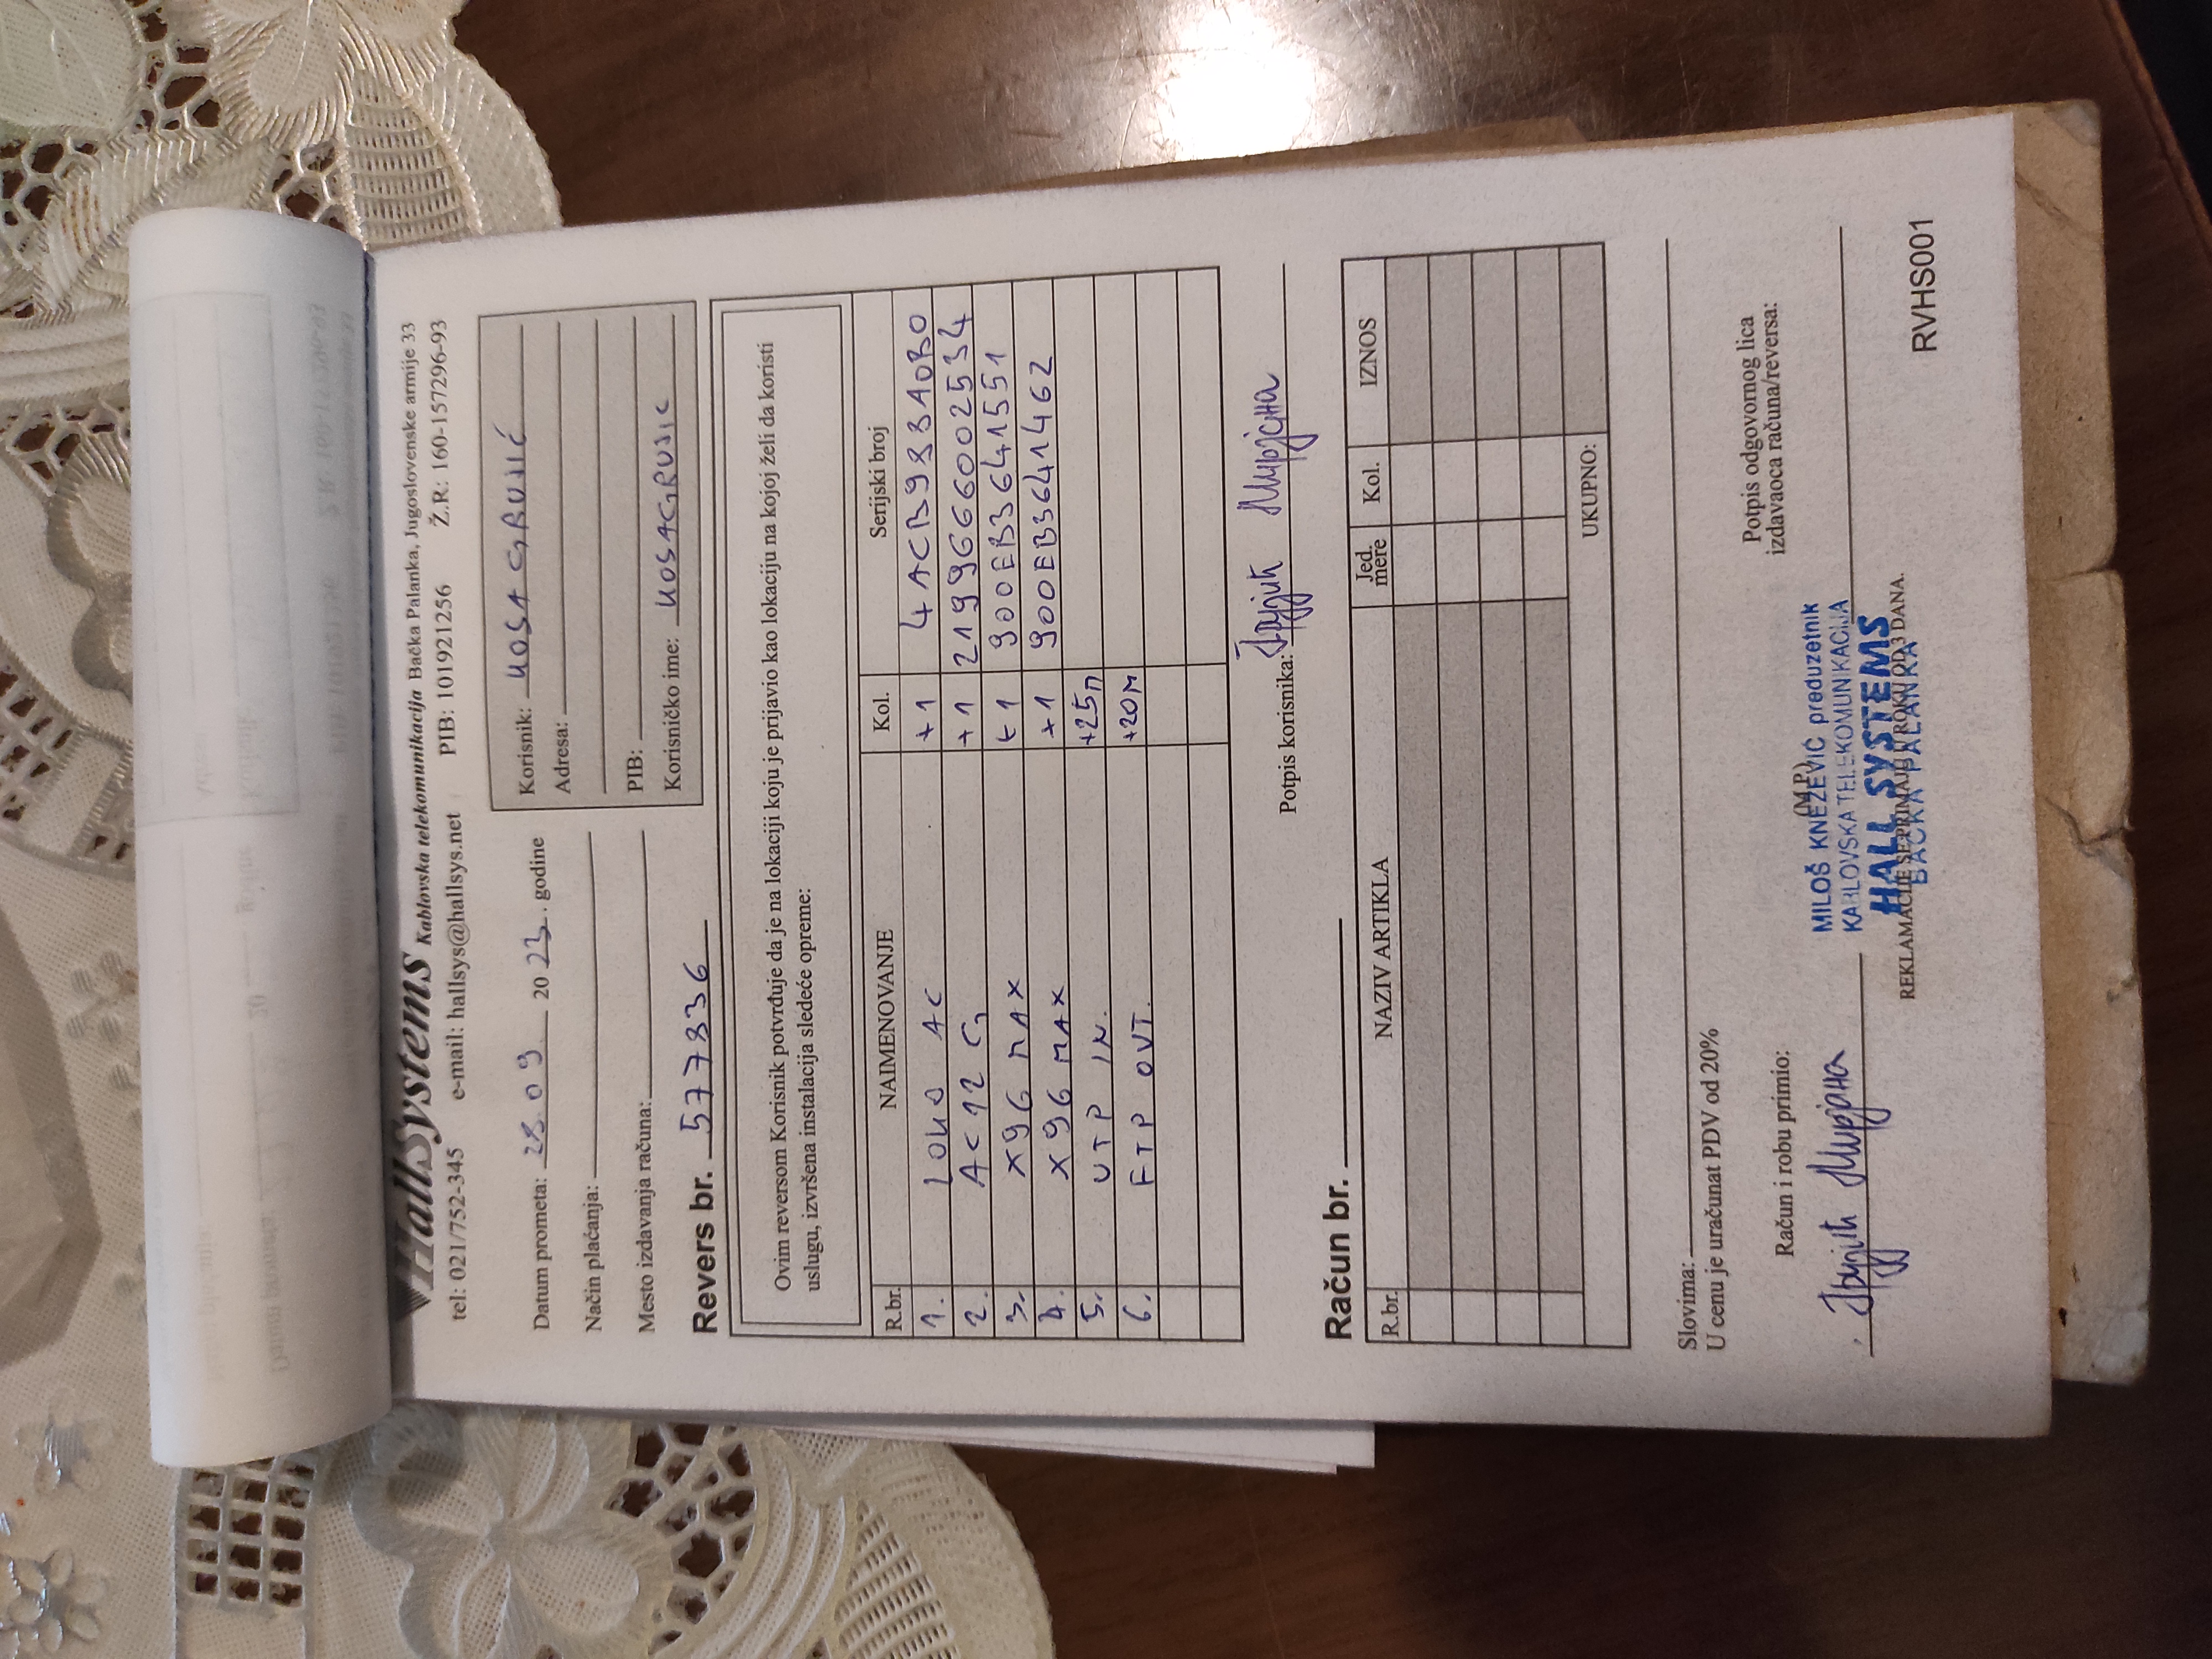 HallSystems Kablovska telekomunikacija Bačka Palanka, Jugoslovenske armije 33
tel: 021/752-345 e-mail: hallsys@hallsys.net PIB: 101921256 Ž.R: 160-157296-93
Datum prometa: 28.09 2023. godine
Način plaćanja:
Mesto izdavanja računa:
Korisnik: UOSA GRUJIĆ
Adresa:
PIB:
Korisničko ime: UOSAGRUJIC
Revers br. 577836
Ovim reversom Korisnik potvrđuje da je na lokaciji koju je prijavio kao lokaciju na kojoj želi da koristi
uslugu, izvršena instalacija sledeće opreme:
R.br. NAIMENOVANJE Kol. Serijski broj
1. LOKO AC +1 4ACB983A0B0
2. AC12 G +1 2199666002534
3. X96 MAX +1 900EB3641551
4. X96 MAX +1 900EB3641462
5. UTP IN. +25M
6. FTP OUT. +20M
Potpis korisnika: Грујић Мирјана
Račun br.
R.br. NAZIV ARTIKLA Jed. mere Kol. IZNOS
UKUPNO:
Slovima:
U cenu je uračunat PDV od 20%
Račun i robu primio:
Грујић Мирјана
(M.P.)
Potpis odgovornog lica
izdavaoca računa/reversa:
MILOŠ KNEŽEVIĆ preduzetnik
KABLOVSKA TELEKOMUNIKACIJA
HALL SYSTEMS
BAČKA PALANKA
REKLAMACIJE SE PRIMAJU U ROKU OD 3 DANA.
RVHS001